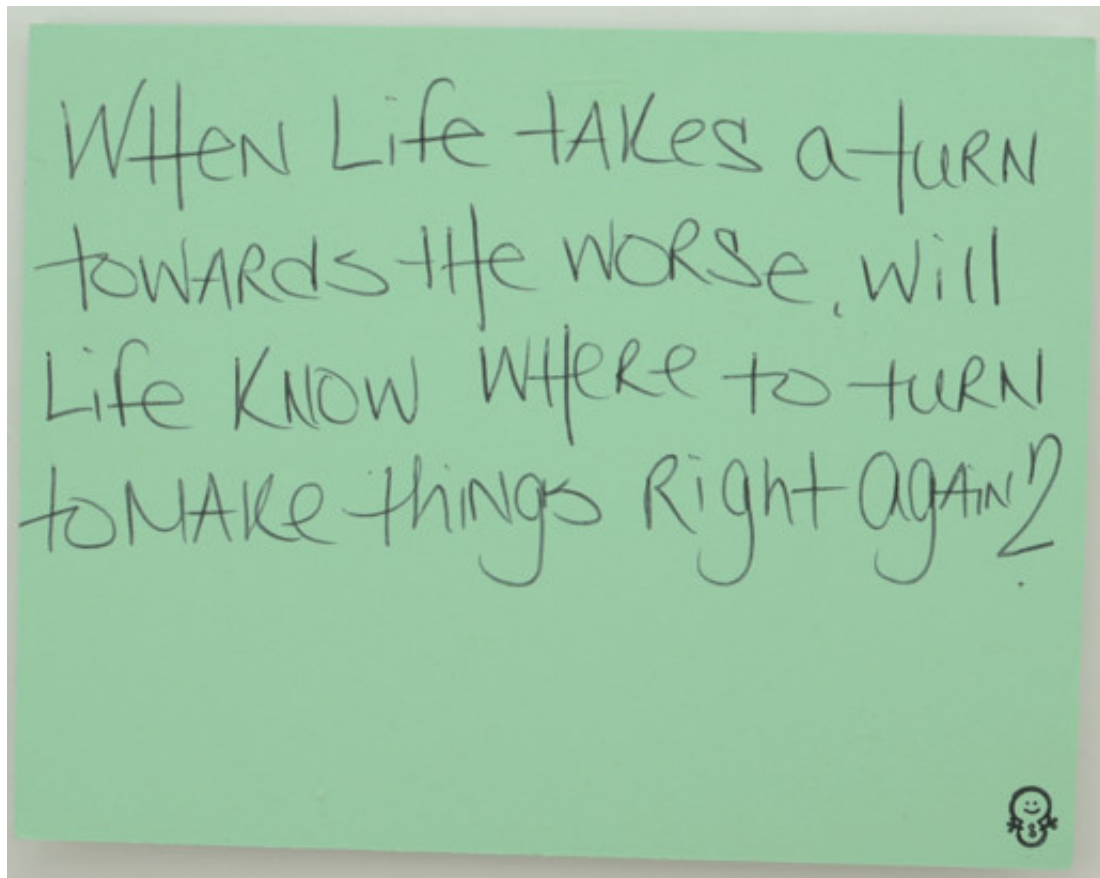 WHeN Life tAKes a tuRN
towARds tHe WORSe, will
Life KNOW WHeRe to tuRN
to MAKe thiNgs Right agAiN?